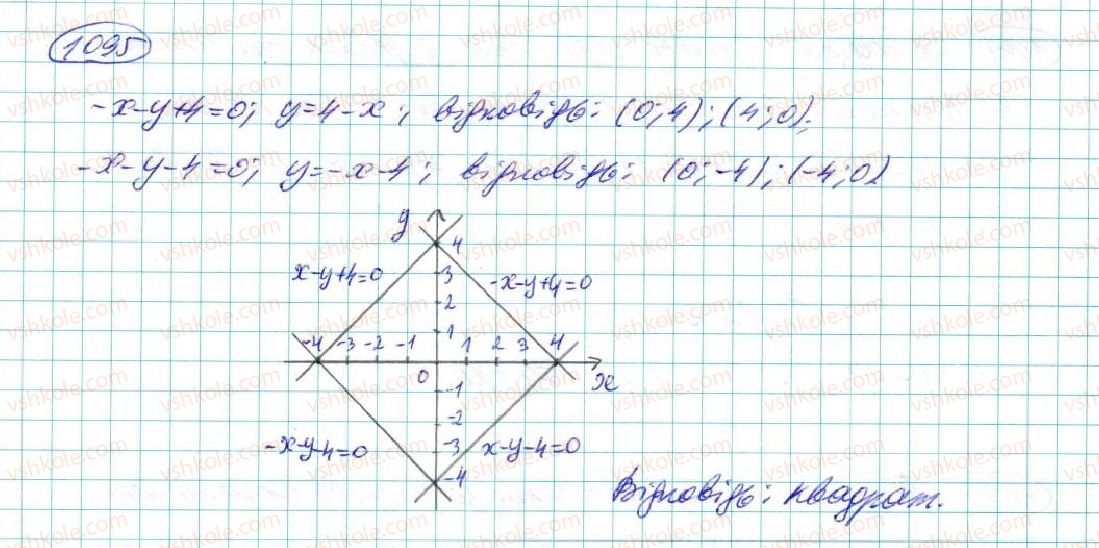 1095
-x-y+4=0; y=4-x; відповідь: (0;4);(4;0).
-x-y-4=0; y=-x-4; відповідь: (0;-4);(-4;0)
y
4
x-y+4=0 3 -x-y+4=0
2
1
-4 -3 -2 -1 1 2 3 4
0 x
-1
-2
-x-y-4=0 -3 x-y-4=0
-4
Відповідь: квадрат.
vshkole.com